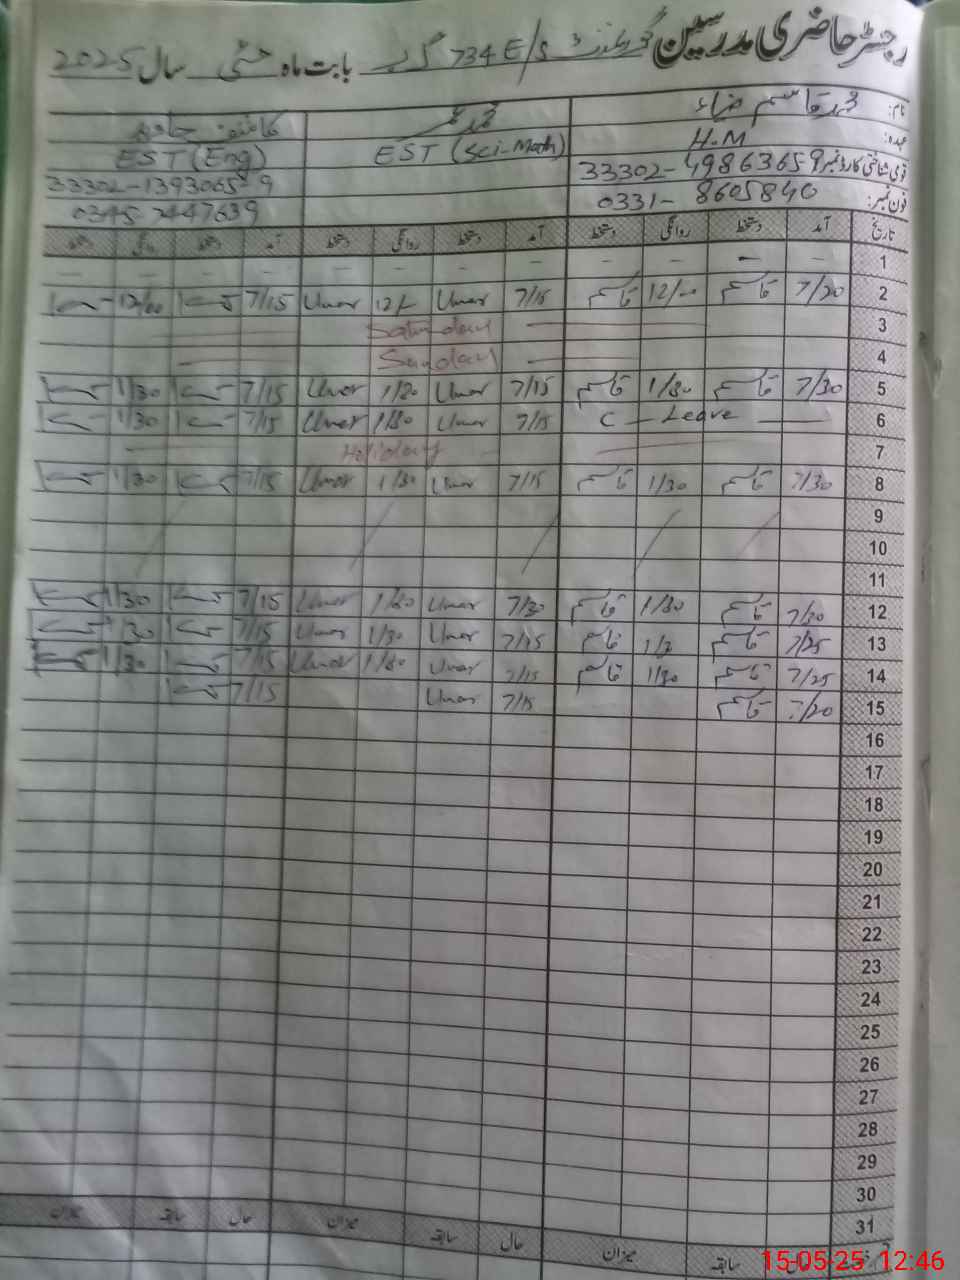 رجسٹر حاضری مدرسین گورنمنٹ E/S 734 گ ب بابت ماہ مئی سال 2025
نام: محمد قاسم ضیاء محمد عمر کاشف جاوید
عہدہ: H.M EST (Sci-Math) EST (Eng)
قومی شناختی کارڈ نمبر 33302-4986365-9 33302-1393065-9
فون نمبر: 0331-8605840 0345 7447639
تاریخ آمد دستخط روانگی دستخط آمد دستخط روانگی دستخط آمد دستخط روانگی دستخط
1 – – – – – – – – – – – –
2 7/20 قاسم 12/00 قاسم 7/15 Umar 12/– Umar 7/15 12/00
3 Saturday
4 Sunday
5 7/30 قاسم 1/30 قاسم 7/15 Umar 1/30 Umar 7/15 1/30
6 C – Leave 7/15 Umar 1/30 Umar 7/15 1/30
7 Holiday
8 7/30 قاسم 1/30 قاسم 7/15 Umar 1/30 Umar 7/15 1/30
9
10
11
12 7/20 قاسم 1/30 قاسم 7/30 Umar 1/30 Umar 7/15 1/30
13 7/25 قاسم 1/3 قاسم 7/15 Umar 1/30 Umar 7/15 1/30
14 7/25 قاسم 1/30 قاسم 7/15 Umar 1/30 Umar 7/15 1/30
15 7/20 قاسم 7/15 Umar 7/15
16
17
18
19
20
21
22
23
24
25
26
27
28
29
30
31
سابقہ میزان حال سابقہ میزان حال سابقہ میزان
15-05-25 12:46